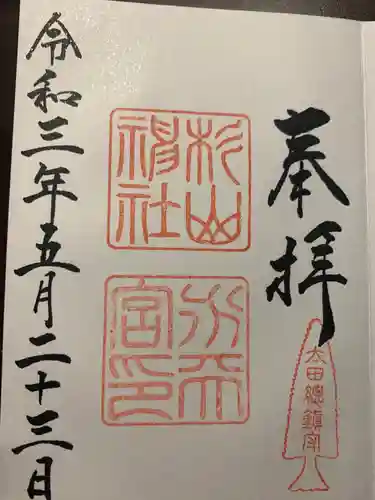 奉拝
太田總鎮守
杉山
神社
水天
宮印
令和三年五月二十三日